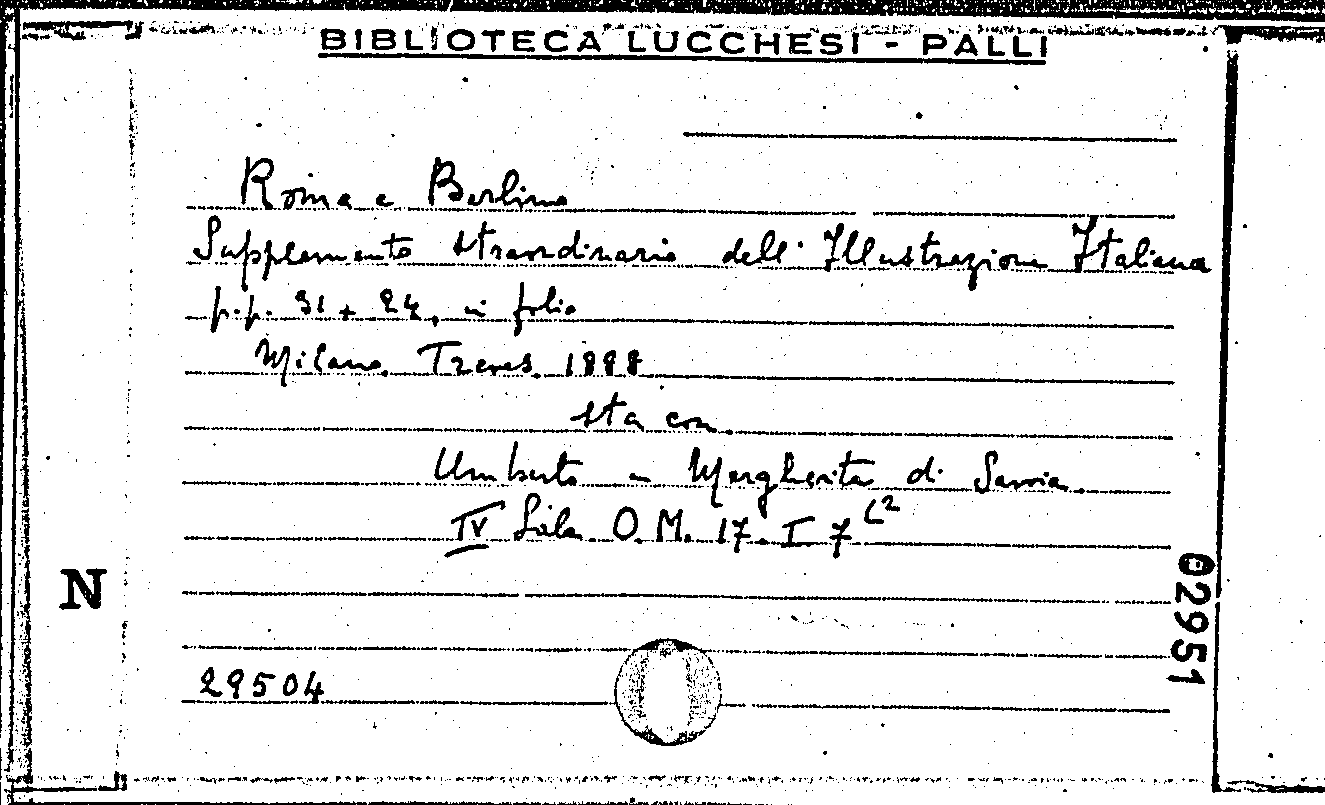 BIBLIOTECA LUCCHESI - PALLI
Roma e Berlino
Supplemento straordinario dell'Illustrazione Italiana
p.p. 31 + 24, in folio
Milano. Treves. 1888
sta con
Umberto e Margherita di Savoia.
IV Sala. O. M. 17. I 7
N
02951
29504